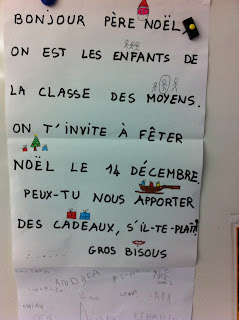 BONJOUR PÈRE NOËL,
ON EST LES ENFANTS DE
LA CLASSE DES MOYENS.
ON T'INVITE À FÊTER
NOËL LE 14 DÉCEMBRE.
PEUX-TU NOUS APPORTER
DES CADEAUX, S'IL-TE-PLAÎT?
GROS BISOUS
ANDREA